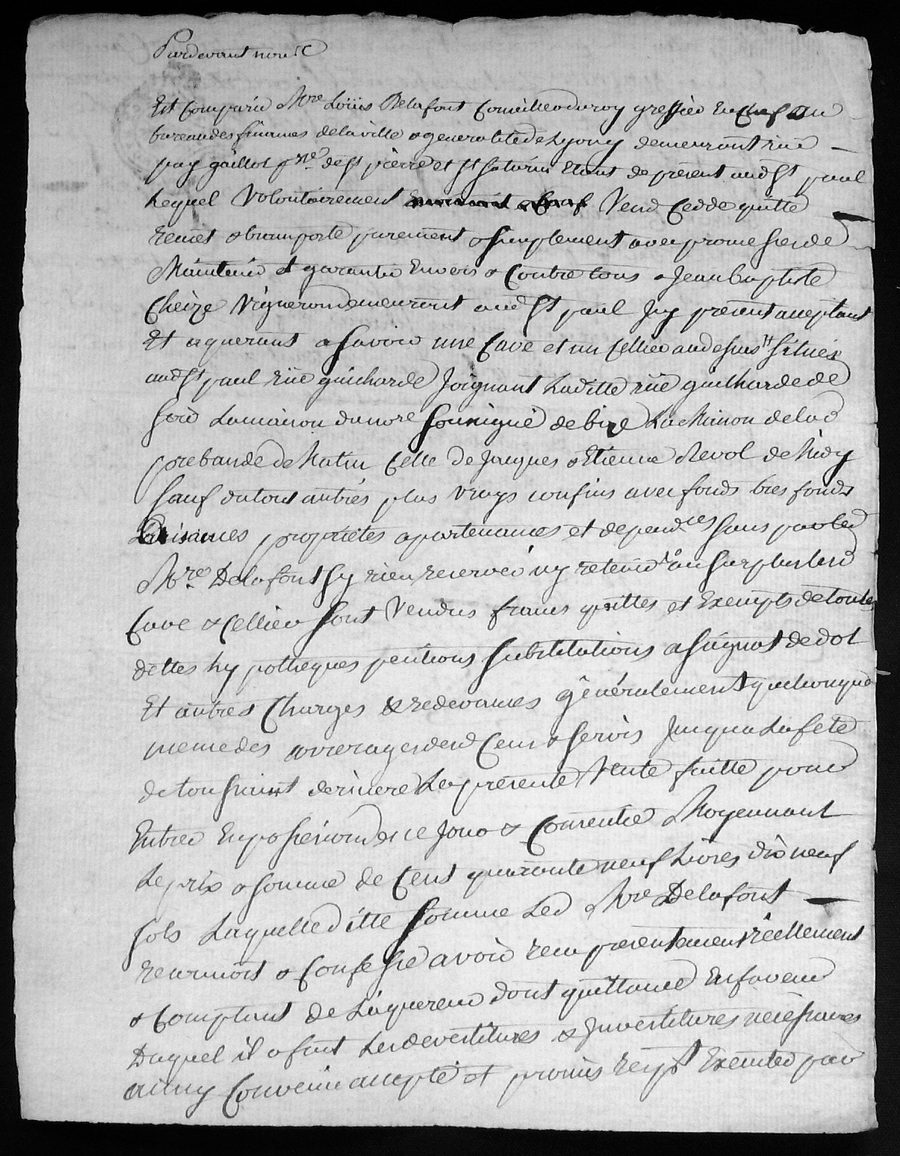 Pardevant not.re
Est Comparu Mre Loüis Delafont Conseiller du roy greffier En Chef au
bureau des finances de la ville & generalité de Lyon y demeurant rüe
puy gaillot psse de St pierre et St saturnin Etant de présent audt St paul
Lequel Volontairement Vend Cedde quitte
remet & transporte purement & simplement avec promesse de
Maintenir et garantir Envers & Contre tous a Jean baptiste
Cheize Vigneron demeurant audt St paul Icy présent acceptant
Et aquerant a savoir une Cave et un Cellier au dessus sitüés
audt St paul rüe guicharde Joignant Laditte rüe guicharde de
soir La maison du nore soussigné de bize La Maison de lad
prebande de Matin Celle de Jacques & Etienne Revol de Midy
sauf du tout autres plus vrays confins avec fonds tres fonds
aisances propriétés apartenances et dependces sans par led
Mre Delafont sy rien reserver ny retenir au surplus lesd
Cave & Cellier sont Vendus francs quittes et Exempts de toutes
dettes hypotheques pentions substitutions assignat de dot
Et autres Charges & redevances généralement quelconques
meme des arrerages desd Cens & servis Jusqua La fete
de toussaint derniere La présente Vente faitte pour
Entrer En possession de ce Jour & Moyennant
Le prix & somme de Cent quarante neuf Livres dix neuf
sols Laquelle ditte somme Led Mre Delafont
reconnoit & Confesse avoir recu presentement réellement
& Comptant de Laquereur dont quittance En faveur
Duquel il a fait Les devestitures & Investitures nécéssaires
ainsy Convenu accepté et promis respt Exécuter par